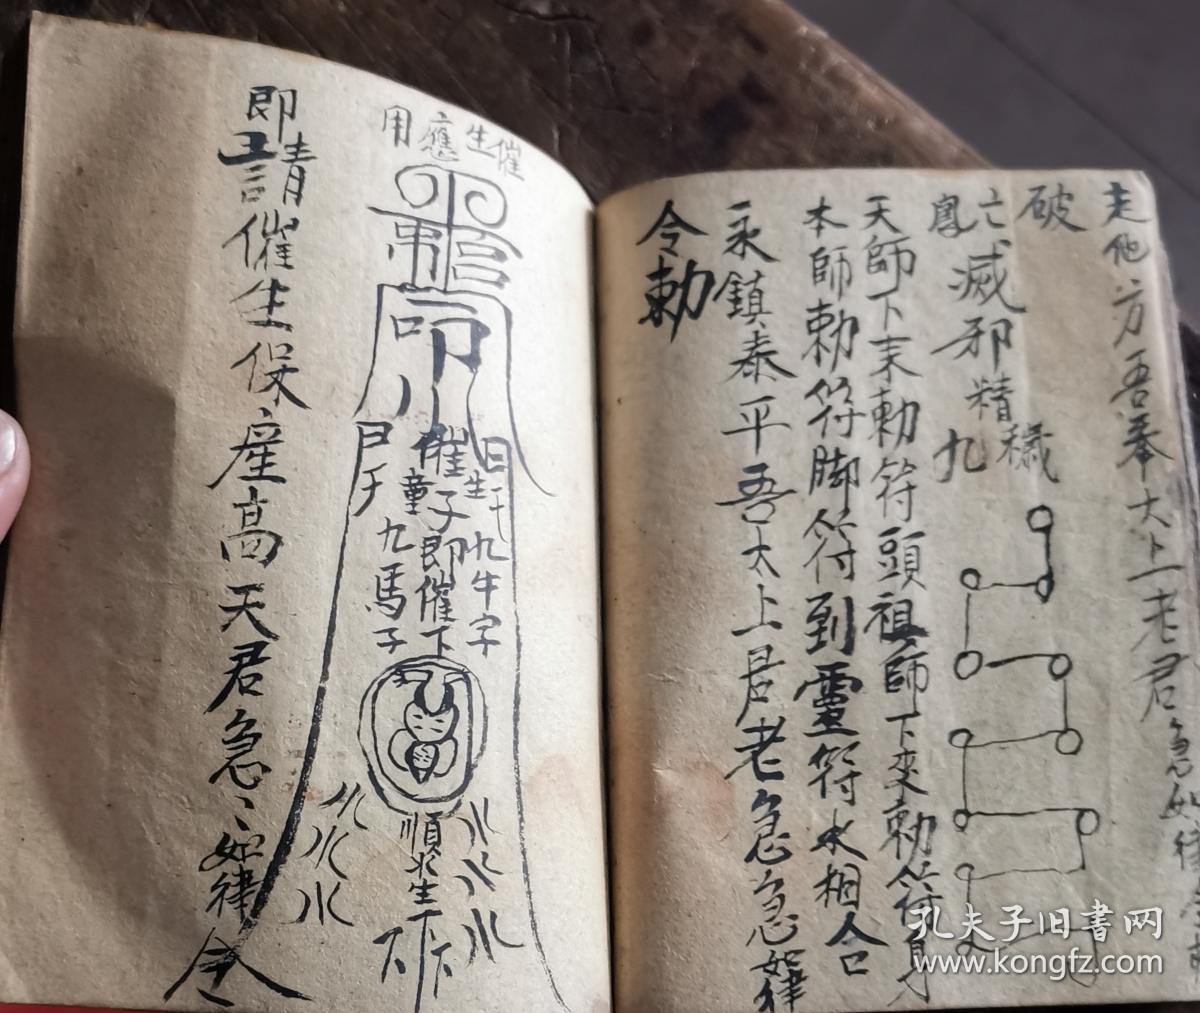 走他方吾奉太上老君急如律令
破
亡滅邪精穢
鳳
九
天師下来勅符頭祖師下來勅符身
本師勅符脚符到靈符水相合
永鎮泰平吾太上君老急急如律
令勅
催生應用
日
尸
催生
童子即催下
九牛字
九馬子
順水生下
水
水
即請催生保產高天君急、如律令
孔夫子旧书网
www.kongfz.com